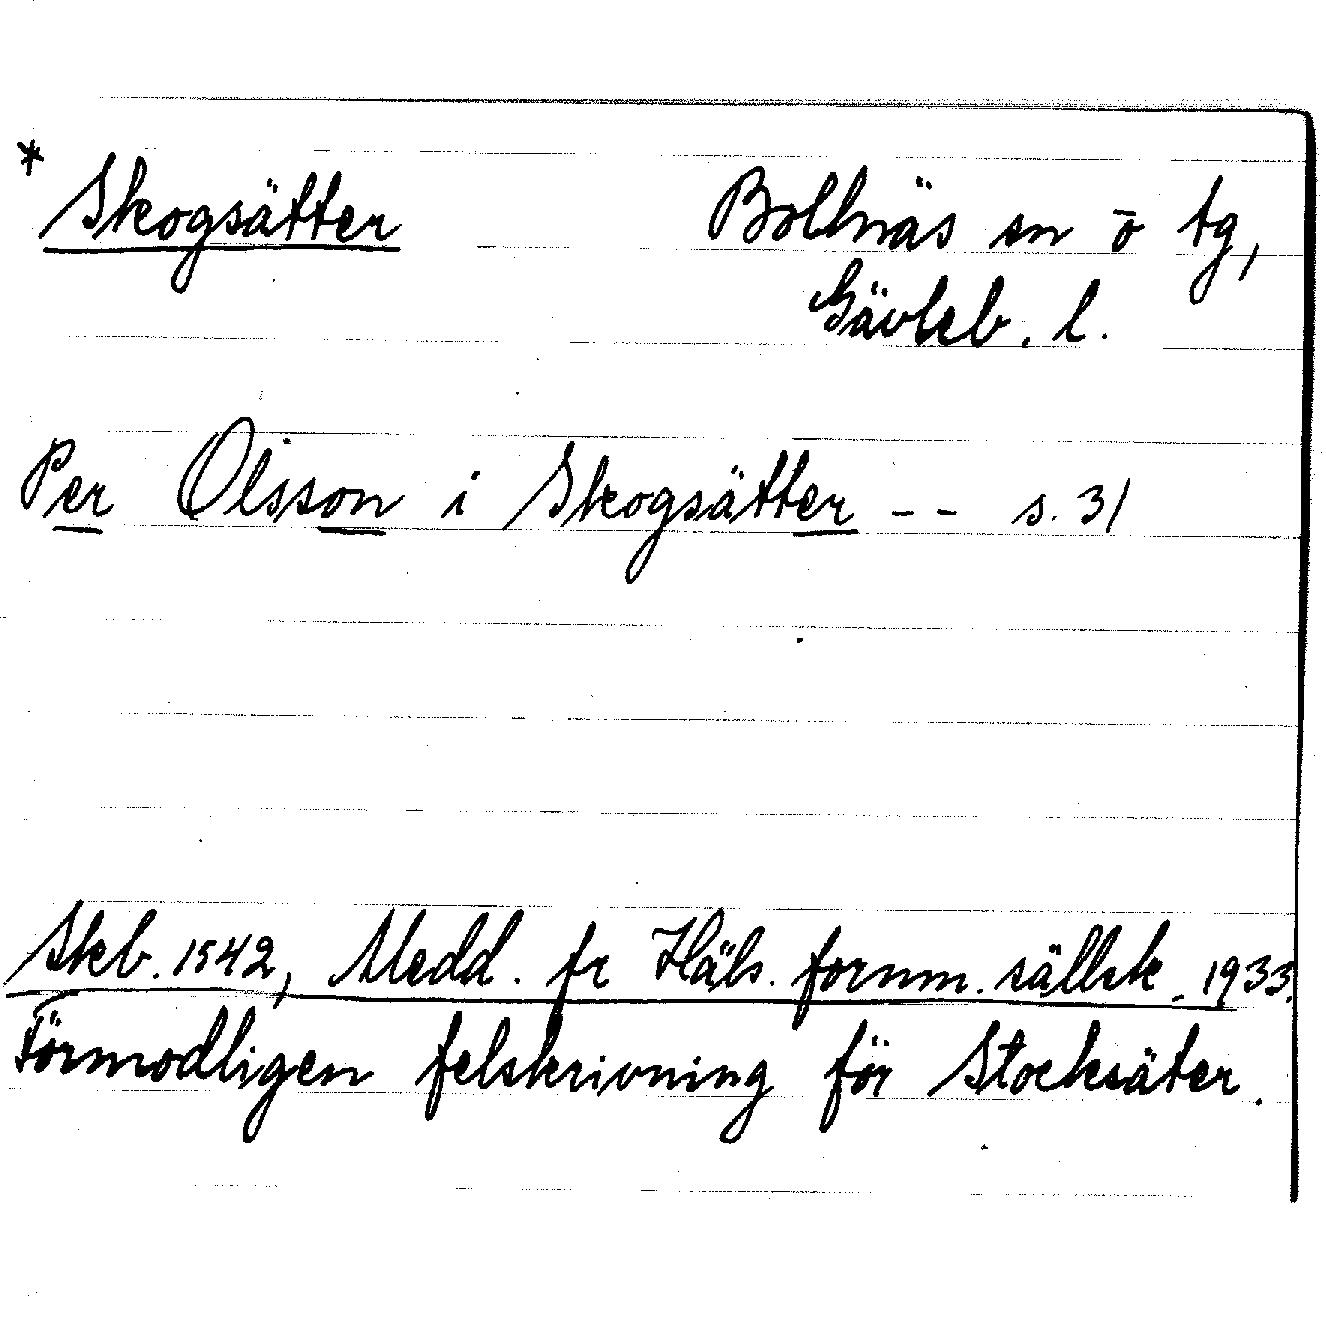 * Skogsätter Bollnäs sn ō tg,
Gävleb. l.
Per Olsson i Skogsätter -- s. 31
Skb. 1542, Medd. fr Häls. fornm. sällsk. 1933.
Förmodligen felskrivning för Stocksäter.